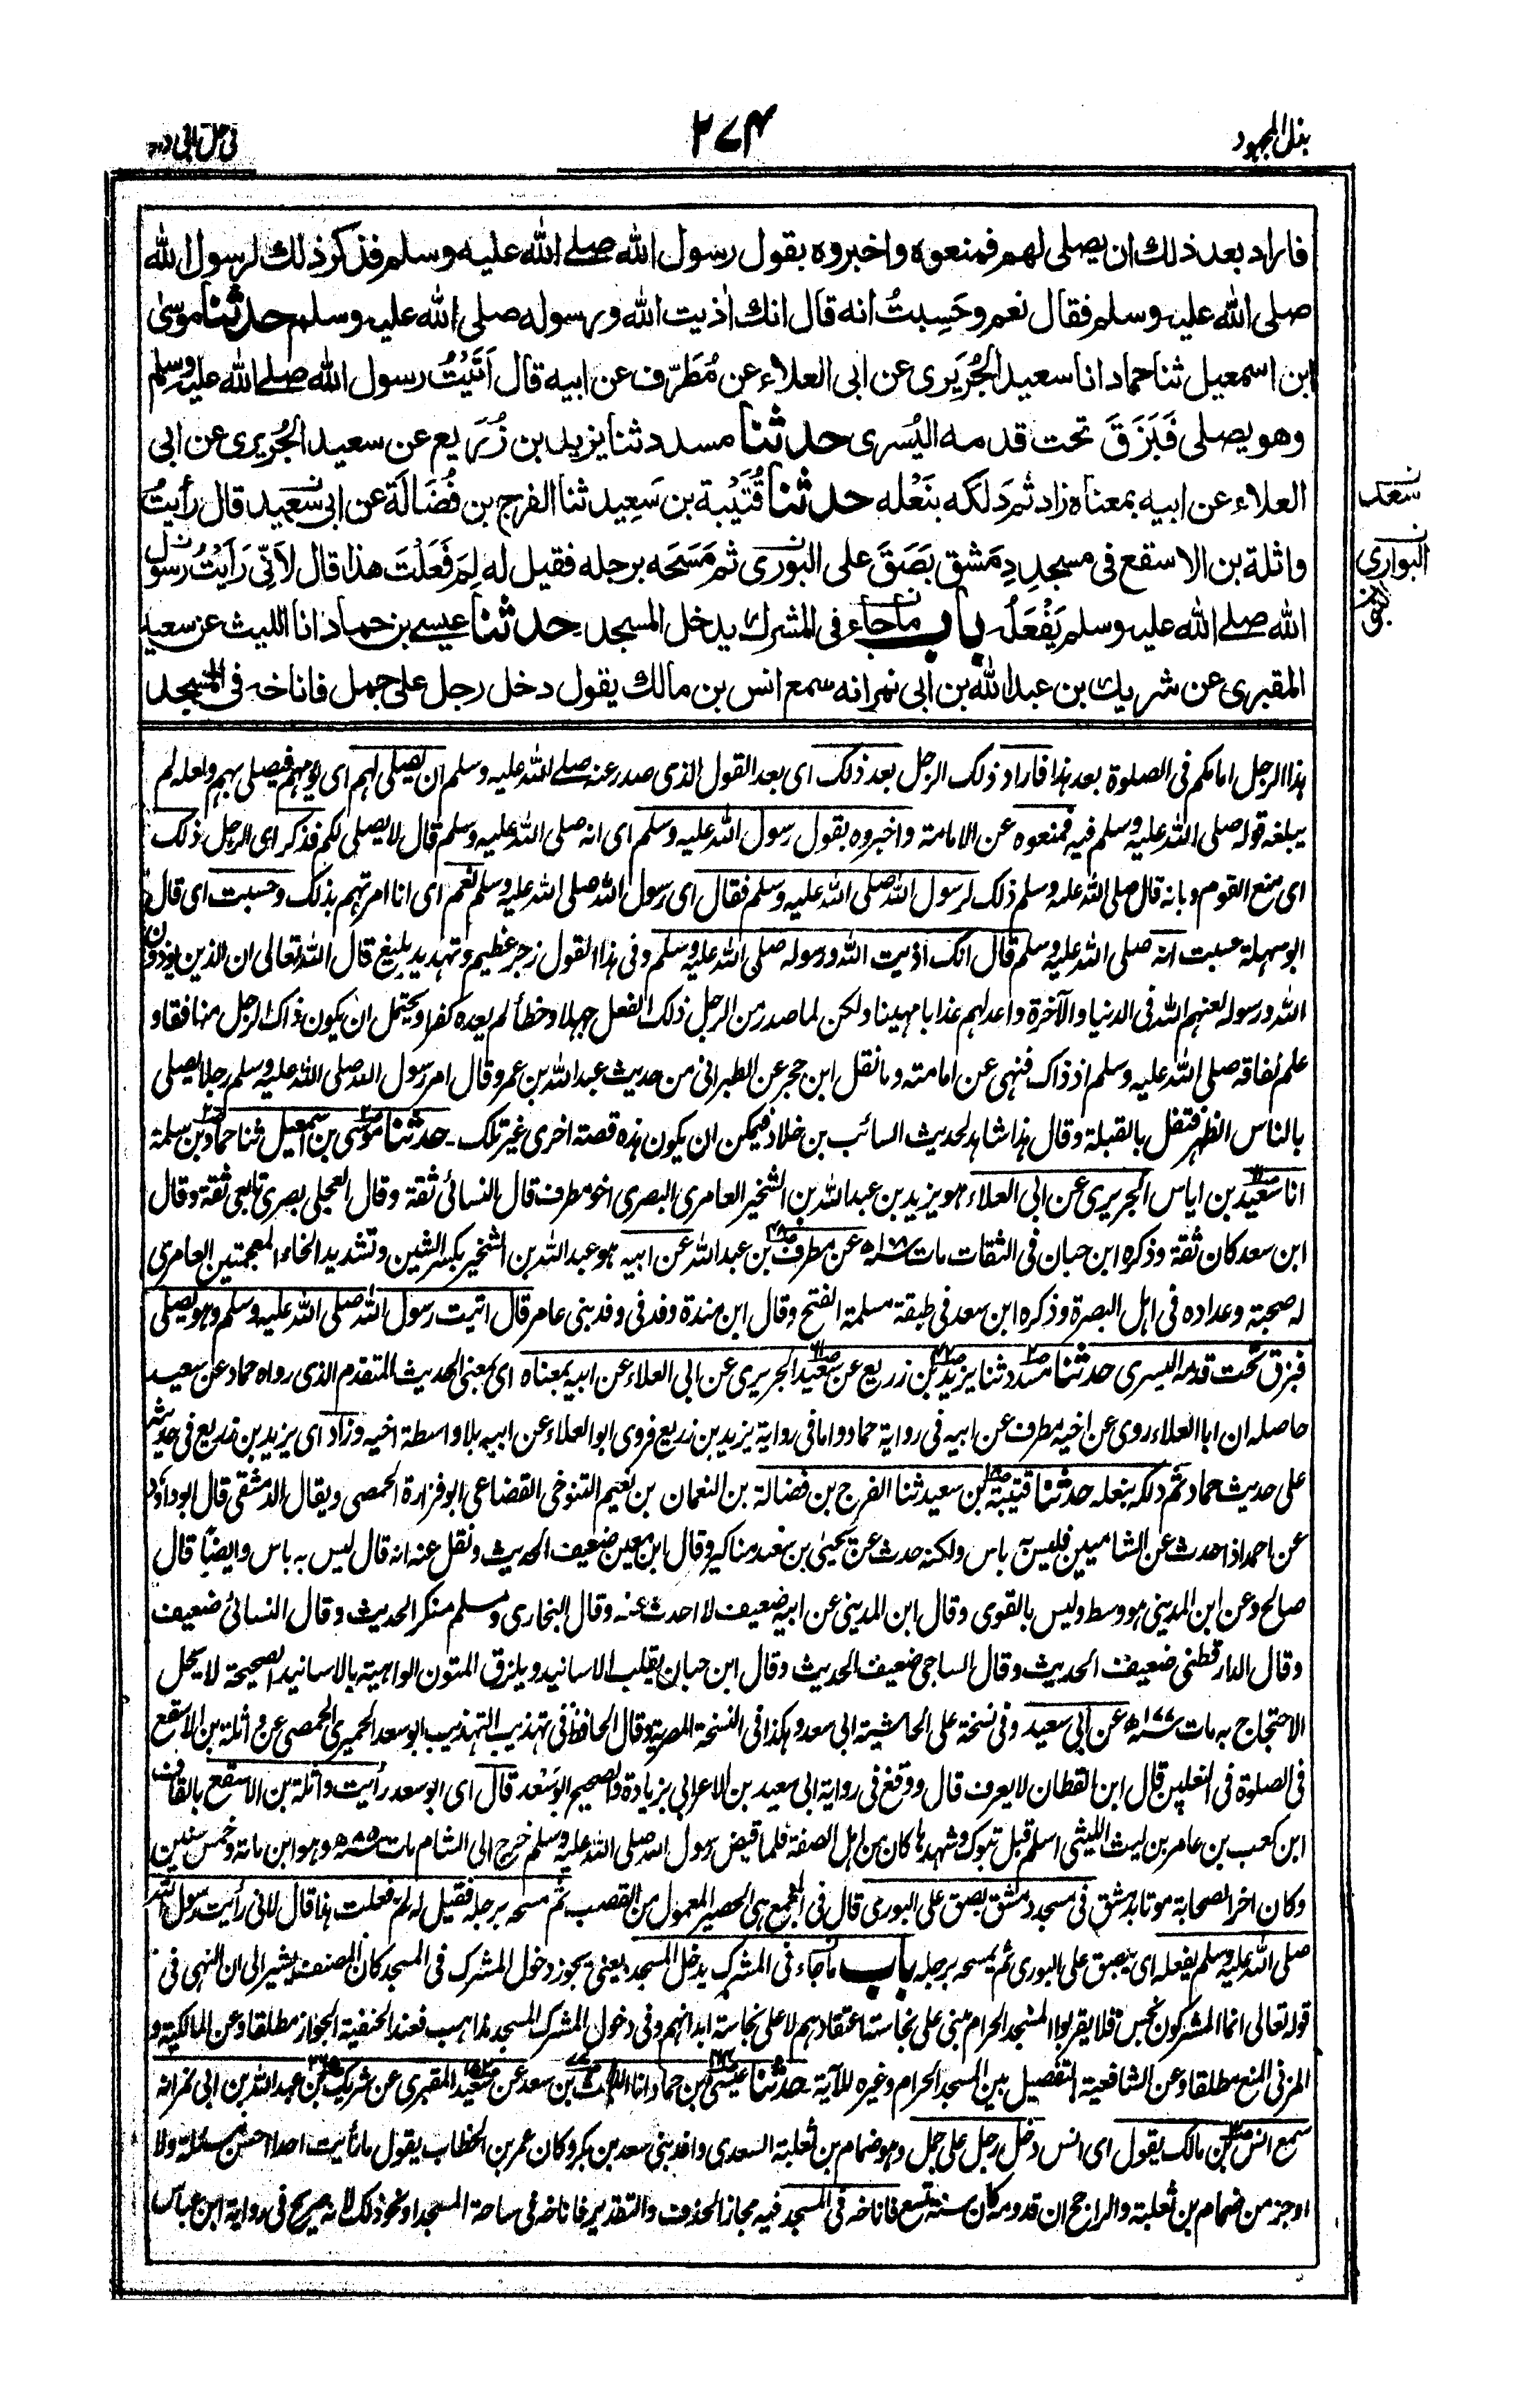 بذل المجهود
٢٧٤
في حل ابي داود
فاراد بعد ذلك ان يصلى لهم فمنعوه واخبروه بقول رسول الله صلى الله عليه وسلم فذكر ذلك لرسول الله
صلى الله عليه وسلم فقال نعم وحَسِبتُ انه قال انك اذيت الله ورسوله صلى الله عليه وسلم حدثنا موسىٰ
ابن اسمعيل ثنا حماد انا سعيد الجُرَيرى عن ابى العلاء عن مُطَرّف عن ابيه قال اَتَيْتُ رسول الله صلى الله عليه وسلم
وهو يصلى فَبَزَقَ تحت قدمه اليُسرى حدثنا مسدد ثنا يزيد بن زُرَيع عن سعيد الجُريرى عن ابى
العلاء عن ابيه بمعناه زاد ثم دَلكه بنَعْله حدثنا قُتَيْبة بن سَعِيد ثنا الفرج بن فُضَالَة عن ابى سَعِيد قال رأيتُ
سعد
واثلة بن الاسقع فى مسجدِ دِمَشق بَصَقَ على البُورى ثم مَسَحَه برجله فقيل له لِمَ فَعَلْتَ هذا قال لاَنّى رَأيْتُ رسول
البوارى
الله صلى الله عليه وسلم يَفْعَلُه باب ماجاء فى المشرك يدخل المسجد حدثنا عيسى بن حماد انا الليث عن سعيد
المقبرى عن شريك بن عبد الله بن ابى نمر انه سمع انس بن مالك يقول دخل رجل على جمل فاناخه فى المسجد
هذا الرجل امامكم فى الصلوة بعد هذا فاراد ذلك الرجل بعد ذلك اى بعد القول الذى صدر عنه صلى الله عليه وسلم ان يصلى لهم اى يؤمهم فيصلى بهم ولعله لم
يبلغه قوله صلى الله عليه وسلم فيه فمنعوه عن الامامة واخبروه بقول رسول الله عليه وسلم اى انه صلى الله عليه وسلم قال لا يصلى لكم فذكر اى الرجل ذلك
اى منع القوم وبانه قال صلى الله عليه وسلم ذلك لرسول الله صلى الله عليه وسلم فقال اى رسول الله صلى الله عليه وسلم نعم اى انا امرتهم بذلك وحسبت اى قال
ابو سهلة حسبت انه صلى الله عليه وسلم قال انك اذيت الله ورسوله صلى الله عليه وسلم وفى هذا القول زجر عظيم وتهديد بليغ قال الله تعالى ان الذين يوذون
الله ورسوله لعنهم الله فى الدنيا والآخرة واعد لهم عذابا مهينا ولكن لما صدر من الرجل ذلك الفعل جهلا وخطأ لم يعده كفرا ويحتمل ان يكون ذاك الرجل منافقا و
علم نفاقه صلى الله عليه وسلم اذ ذاك فنهى عن امامته وما نقل ابن حجر عن الطبرانى من حديث عبد الله بن عمرو قال امر رسول الله صلى الله عليه وسلم رجلا يصلى
بالناس الظهر فتفل بالقبلة وقال هذا شاهد لحديث السائب بن خلاد فيمكن ان يكون هذه قصة اخرى غير تلك۔ حدثنا موسى بن اسمعيل ثنا حماد بن سلمة
انا سعيد بن اياس الجريرى عن ابى العلاء هو يزيد بن عبد الله بن الشخير العامرى البصرى اخو مطرف قال النسائى ثقة وقال العجلى بصرى تابعى ثقة وقال
ابن سعد كان ثقة وذكره ابن حبان فى الثقات مات عن مطرف بن عبد الله عن ابيه هو عبد الله بن الشخير بكسر الشين وتشديد الخاء المعجمتين العامرى
له صحبة وعداده فى اهل البصرة وذكره ابن سعد فى طبقة مسلمة الفتح وقال ابن مندة وفد فى وفد بنى عامر قال اتيت رسول الله صلى الله عليه وسلم وهو يصلى
فبزق تحت قدمه اليسرى حدثنا مسدد ثنا يزيد بن زريع عن سعيد الجريرى عن ابى العلاء عن ابيه بمعناه اى بمعنى الحديث المتقدم الذى رواه حماد عن سعيد
حاصله ان ابا العلاء روى عن اخيه مطرف عن ابيه فى رواية حماد واما فى رواية يزيد بن زريع فروى ابو العلاء عن ابيه بلا واسطة اخيه وزاد اى يزيد بن زريع فى حديثه
على حديث حماد ثم دلكه بنعله حدثنا قتيبة بن سعيد ثنا الفرج بن فضالة بن النعمان بن نعيم التنوخى القضاعى ابو فزارة الحمصى ويقال الدمشقى قال ابو داؤد
عن احمد اذا حدث عن الشاميين فليس به باس ولكنه حدث عن يحيى بن سعيد مناكير وقال ابن معين ضعيف الحديث ونقل عنه انه قال ليس به باس وايضًا قال
صالح وعن ابن المدينى هو وسط وليس بالقوى وقال ابن المدينى عن ابيه ضعيف لا احدث عنه وقال البخارى ومسلم منكر الحديث وقال النسائى ضعيف
وقال الدارقطنى ضعيف الحديث وقال الساجى ضعيف الحديث وقال ابن حبان يقلب الاسانيد ويلزق المتون الواهية بالاسانيد الصحيحة لا يحل
الاحتجاج به مات ١٧٧ه عن ابى سعيد وفى نسخة على الحاشية ابى سعد وهكذا فى النسخة المصرية وقال الحافظ فى تهذيب التهذيب ابو سعد الحميرى الحمصى عن واثلة بن الاسقع
فى الصلوة فى النعلين قال ابن القطان لا يعرف قال ووقع فى رواية ابى سعيد بن الاعرابى بزيادة والصحيح ابو سعد قال اى ابو سعد رأيت واثلة بن الاسقع بالقاف
ابن كعب بن عامر بن ليث الليثى اسلم قبل تبوك وشهدها كان من اهل الصفة فلما قبض رسول الله صلى الله عليه وسلم خرج الى الشام مات ٨٥ه وهو ابن مائة وخمس سنين
وكان اخر الصحابة موتا بدمشق فى مسجد دمشق بصق على البورى قال فى المجمع هى الحصير المعمول من القصب ثم مسحه برجله فقيل له لم فعلت هذا قال لانى رأيت رسول الله
صلى الله عليه وسلم يفعله اى يبصق على البورى ثم يمسحه برجله باب ماجاء فى المشرك يدخل المسجد يعنى يجوز دخول المشرك فى المسجد كان المصنف يشير الى ان النهى فى
قوله تعالى انما المشركون نجس فلا يقربوا المسجد الحرام مبنى على نجاسة اعتقادهم لا على نجاسة ابدانهم وفى دخول المشرك المسجد مذاهب فعند الحنفية الجواز مطلقا وعن المالكية و
المزنى المنع مطلقا وعن الشافعية التفصيل بين المسجد الحرام وغيره للآية۔ حدثنا عيسى بن حماد انا الليث بن سعد عن سعيد المقبرى عن شريك بن عبد الله بن ابى نمر انه
سمع انس بن مالك يقول اى انس دخل رجل على جمل وهو ضمام بن ثعلبة السعدى وافد بنى سعد بن بكر وكان عمر بن الخطاب يقول ما رأيت احدا احسن مسئلة ولا
اوجز من ضمام بن ثعلبة والراجح ان قدومه كان سنة تسع فاناخه فى المسجد فيه مجاز الحذف والتقدير فاناخه فى ساحة المسجد او نحو ذلك لانه صريح فى رواية ابن عباس